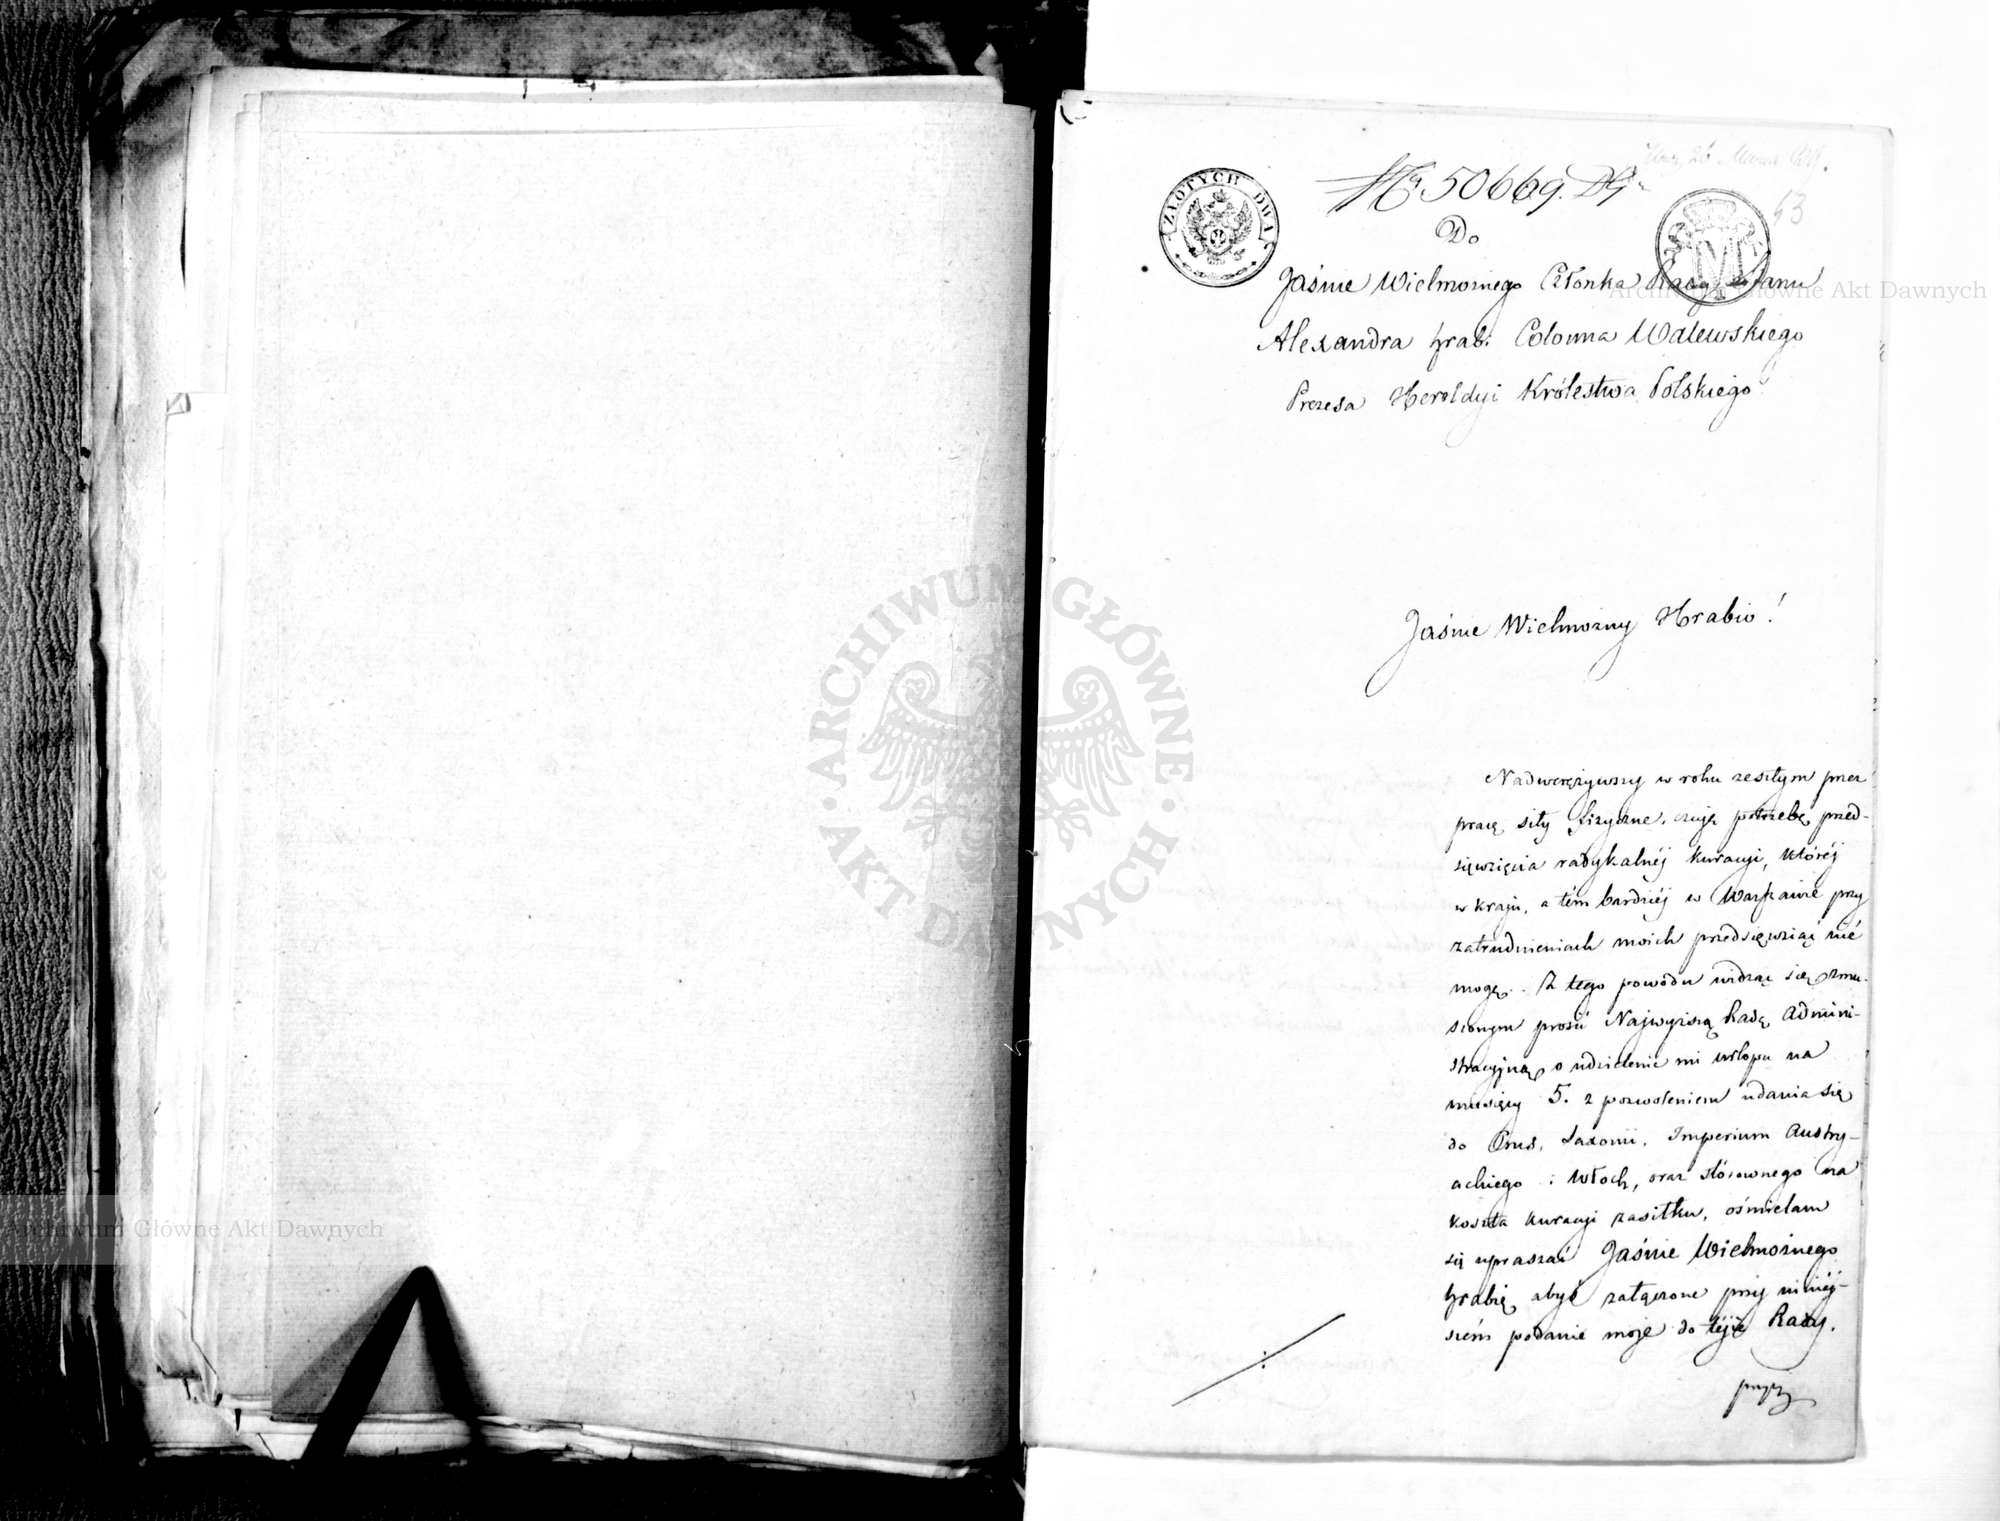 26 Marca
50669.
53
ZŁOTYCH DWA
Do
Jaśnie Wielmożnego Członka Rady Stanu
Alexandra hrab: Colonna Walewskiego
Prezesa Heroldyi Królestwa Polskiego
Jaśnie Wielmożny Hrabio!
Nadwerężywszy w roku zeszłym przez
pracę siły fizyczne, czuję potrzebę przed-
sięwzięcia radykalnéj kuracyi, któréj
w kraju, a tém bardziéj w Warszawie przy
zatrudnieniach moich przedsięwziąć nie
mogę. Z tego powodu widząc się zmu-
szonym prosić Najwyższą Radę Admini-
stracyjną o udzielenie mi urlopu na
miesięcy 5. z pozwoleniem udania się
do Prus, Saxonii, Imperium Austry-
ackiego i Włoch, oraz stósownego na
koszta kuracyi zasiłku, ośmielam
się upraszać Jaśnie Wielmożnego
hrabię abyś załączone przy niniéj-
szém podanie moje do téjże Rady,
przyj
ARCHIWUM GŁÓWNE
AKT DAWNYCH
Archiwum Główne Akt Dawnych
Archiwum Główne Akt Dawnych